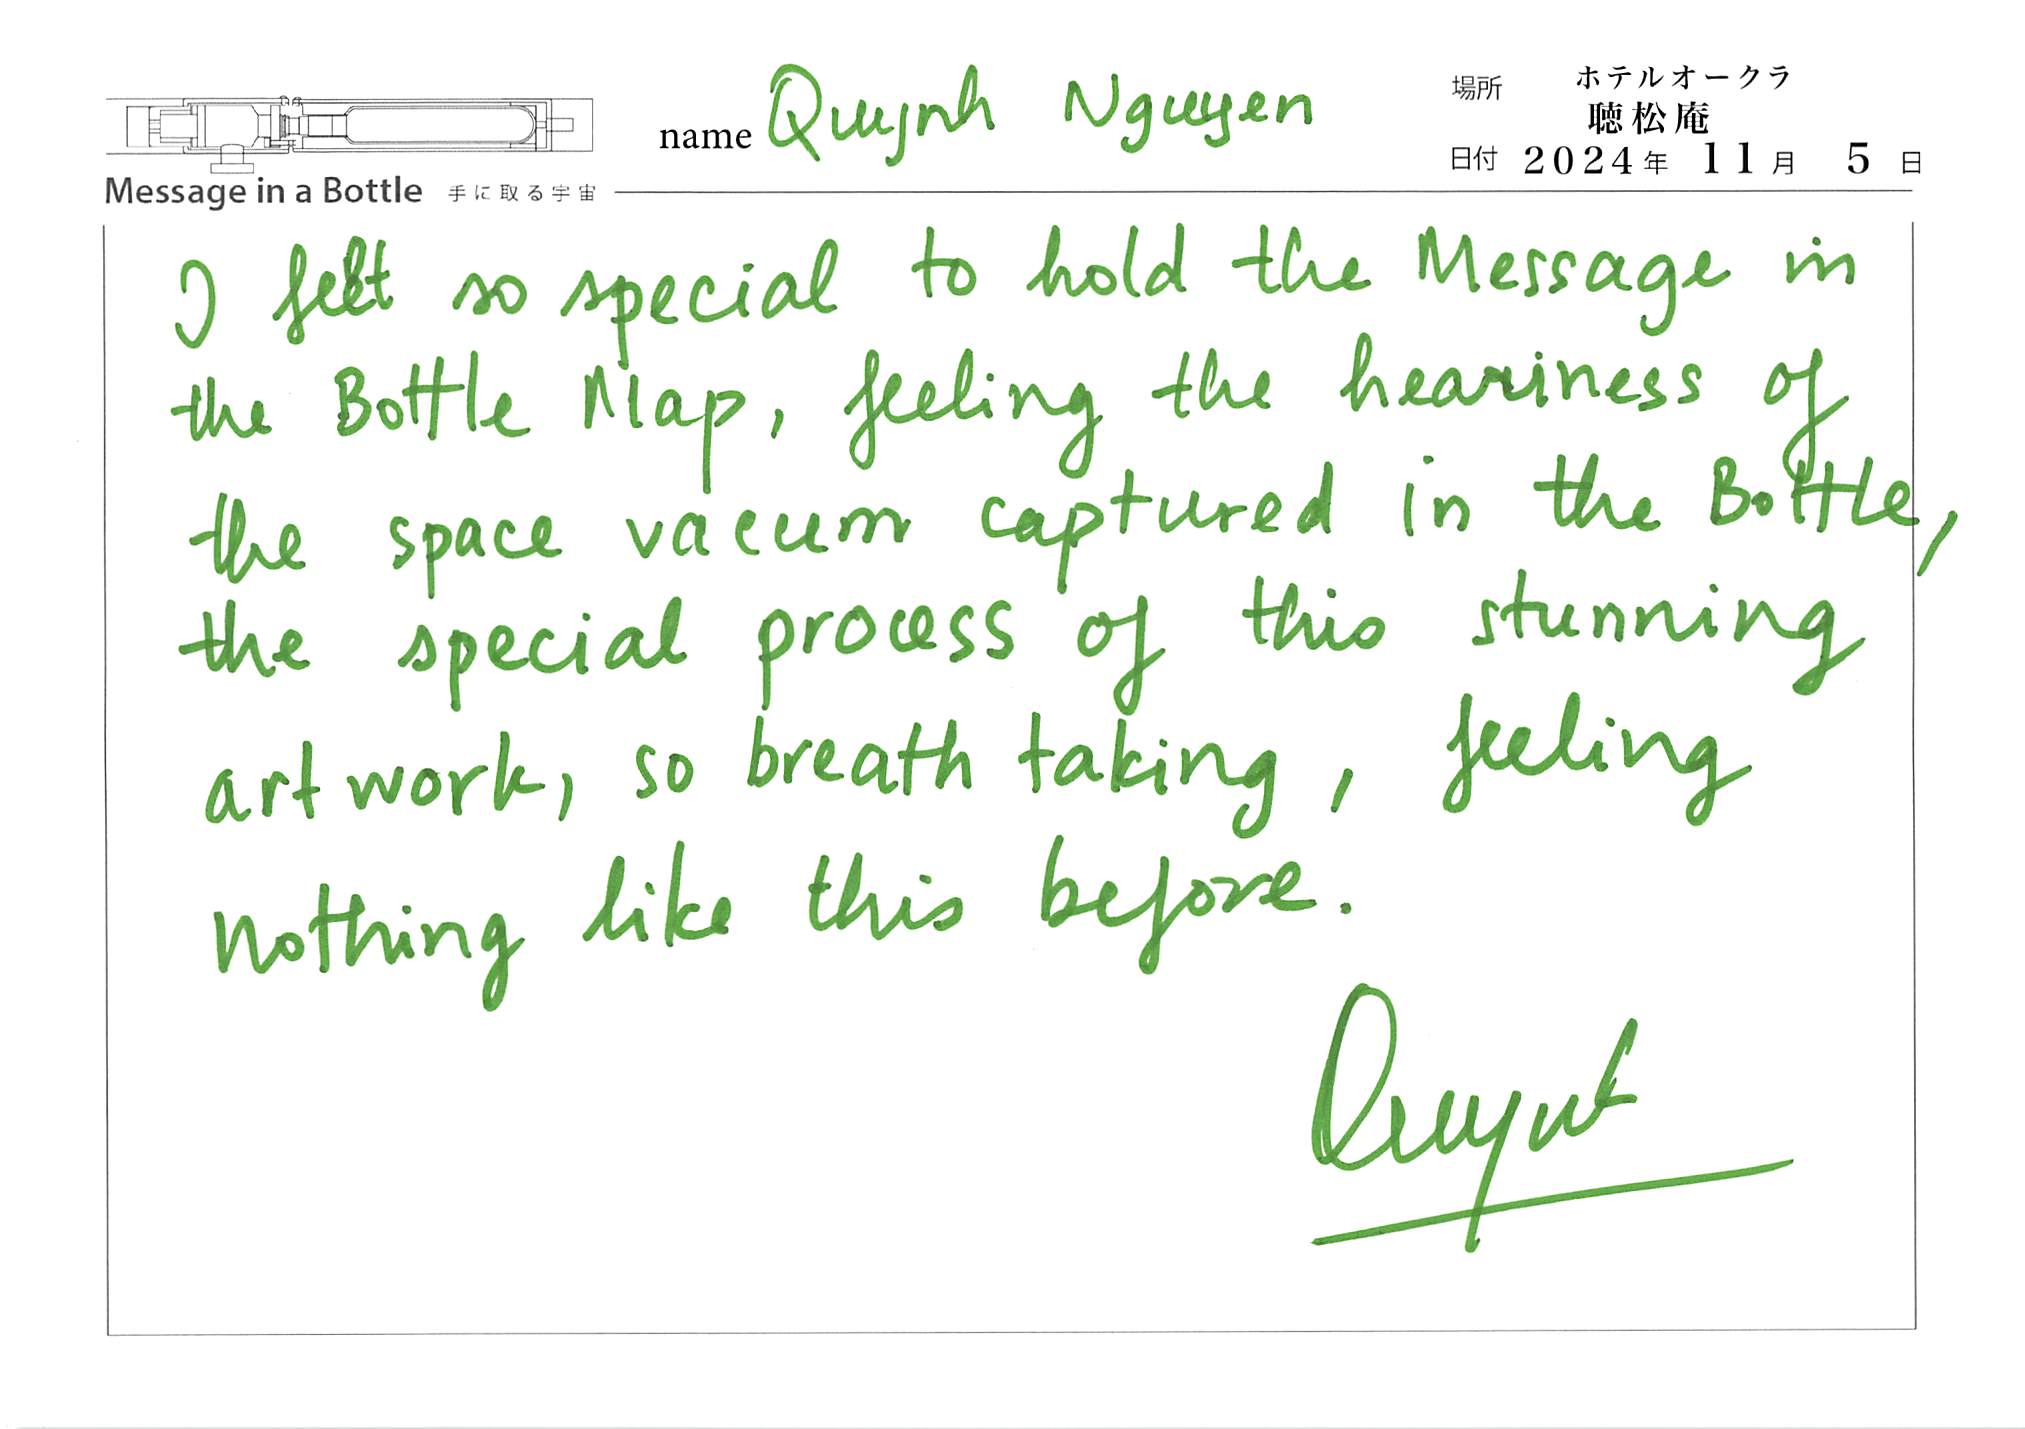 name Quynh Nguyen
場所 ホテルオークラ
聴松庵
日付 2024年 11月 5日
Message in a Bottle 手に取る宇宙
I felt so special to hold the Message in
the Bottle Map, feeling the heaviness of
the space vacuum captured in the Bottle,
the special process of this stunning
art work, so breath taking, feeling
nothing like this before.
Quynh